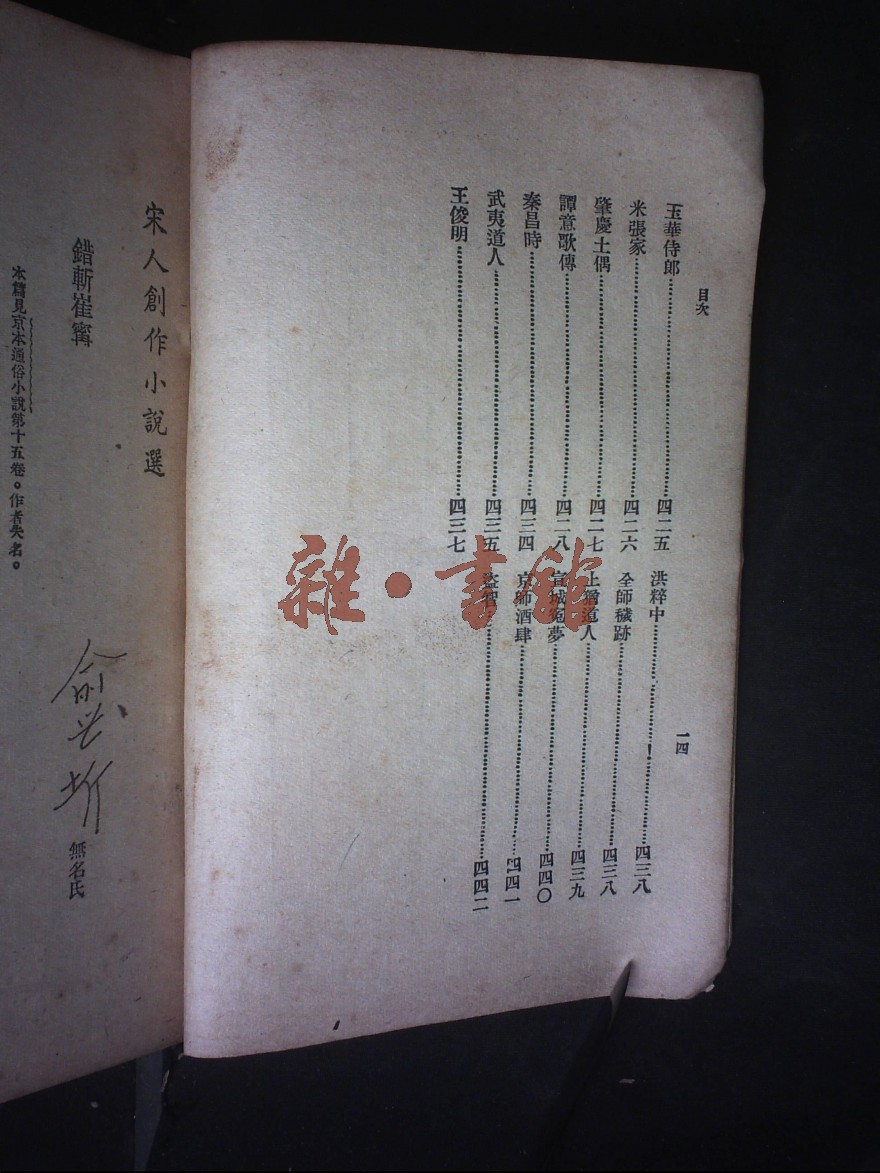 目次
一四
玉華侍郎……四二五
米張家……四二六
肇慶土偶……四二七
譚意歌傳……四二八
秦昌時……四三四
武夷道人……四三五
王俊明……四三七
洪粹中……四三八
全師穢跡……四三八
上猶道人……四三九
宣城冤夢……四四〇
京師酒肆……四四一
盜智……四四二
雜·書館
宋人創作小說選
錯斬崔寗
無名氏
本篇見京本通俗小說第十五卷。作者失名。